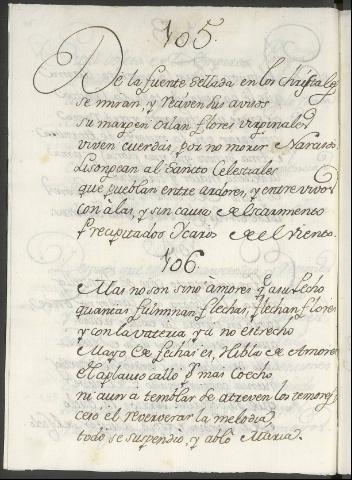 105.
De la fuente sellada en los christales
se miran, y reciven sus avisos
su margen orlan flores virginales
viven cuerdas, por no morir Narcisos.
Lisongean al Sancto Celestiales
que pueblan entre ardores, y entre
con alas, y sin causa de escarmiento
precipitados Ycaros de el viento.
106.
Mas no son sino amores q̃ a su Pecho
quantas fulminan flechas, flechan flores
y con la vateria ya no estrecho
Mayo de flechas es, Hibla de Amores
el aplauso calló
ni aun a temblar se atreven los temores
cesó el reververar la melodia
todo se suspendio, y abló Maria.